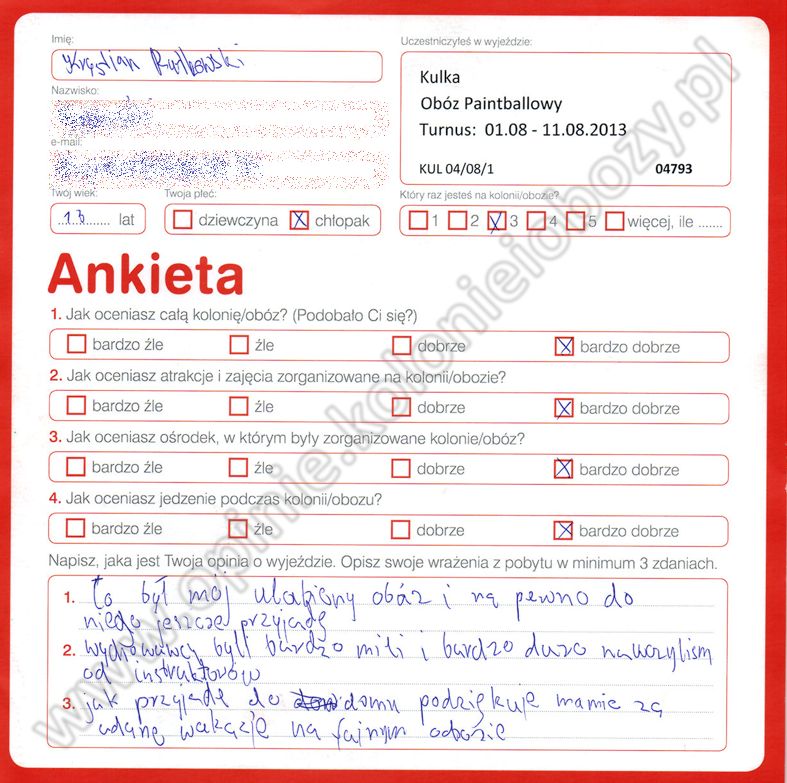 Imię:
Krystian Rutkowski
Nazwisko:
e-mail:
Twój wiek:
13 lat
Twoja płeć:
dziewczyna chłopak
Uczestniczyłeś w wyjeździe:
Kulka
Obóz Paintballowy
Turnus: 01.08 - 11.08.2013
KUL 04/08/1 04793
Który raz jesteś na kolonii/obozie?
1 2 3 4 5 więcej, ile .......
Ankieta
1. Jak oceniasz całą kolonię/obóz? (Podobało Ci się?)
bardzo źle źle dobrze bardzo dobrze
2. Jak oceniasz atrakcje i zajęcia zorganizowane na kolonii/obozie?
bardzo źle źle dobrze bardzo dobrze
3. Jak oceniasz ośrodek, w którym były zorganizowane kolonie/obóz?
bardzo źle źle dobrze bardzo dobrze
4. Jak oceniasz jedzenie podczas kolonii/obozu?
bardzo źle źle dobrze bardzo dobrze
Napisz, jaka jest Twoja opinia o wyjeździe. Opisz swoje wrażenia z pobytu w minimum 3 zdaniach.
1. To był mój ulubiony obóz i na pewno do
niego jeszcze przyjadę
2. wychowawcy byli bardzo mili i bardzo dużo nauczyliśm
od instruktorów
3. jak przyjadę do domu podziękuje mamie za
udane wakacje na fajnym obozie
www.opinie.kolonieiobozy.pl